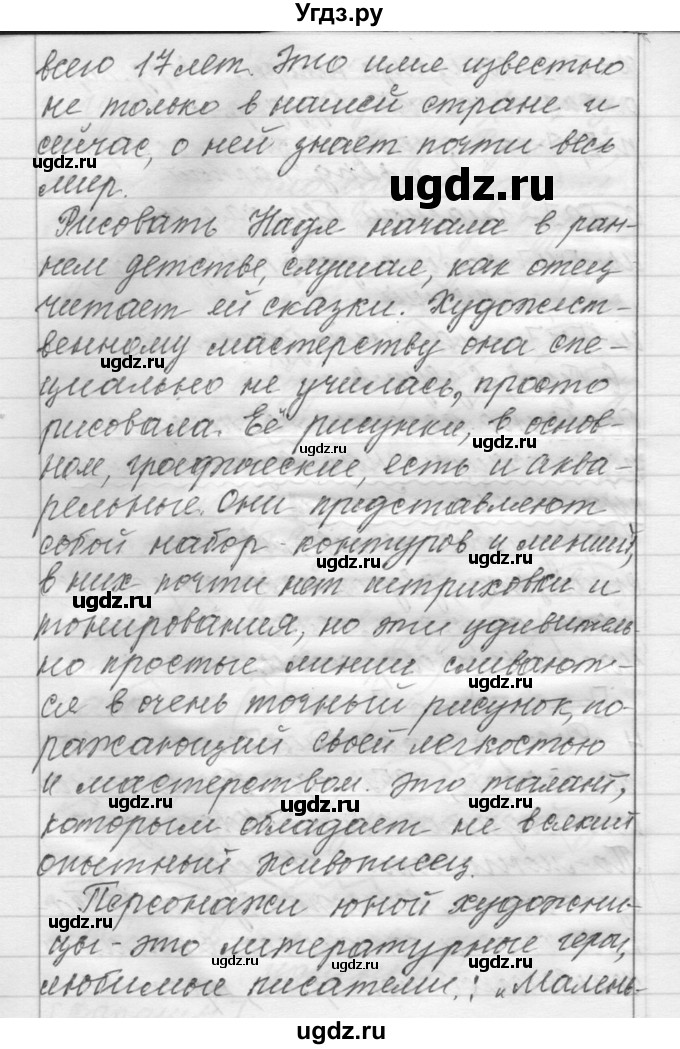 Угдз.ру
всего 17 лет. Это имя известно
не только в нашей стране и
сейчас, о ней знает почти весь
ugdz.ru
мир.
ugdz.ru
Рисовать Надя начала в ран-
нем детстве, слушая, как отец
читает ей сказки. Художест-
венному мастерству она спе-
ugdz.ru
циально не училась, просто
рисовала. Её рисунки, в основ-
ugdz.ru
ном, графические, есть и аква-
рельные. Они представляют
собой набор контуров и линий,
ugdz.ru
ugdz.ru
в них почти нет штриховки и
ugdz.ru
тонирования, но эти удивитель-
но простые линии сливают-
ugdz.ru
ugdz.ru
ся в очень точный рисунок, по-
ражающий своей легкостью
и мастерством. Это талант,
ugdz.ru
ugdz.ru
ugdz.ru
которым обладает не всякий
опытный живописец.
Персонажи юной художни-
ugdz.ru
цы - это литературные герои,
ugdz.ru
ugdz.ru
любимые писатели: „Малень-
ugdz.ru
ugdz.ru